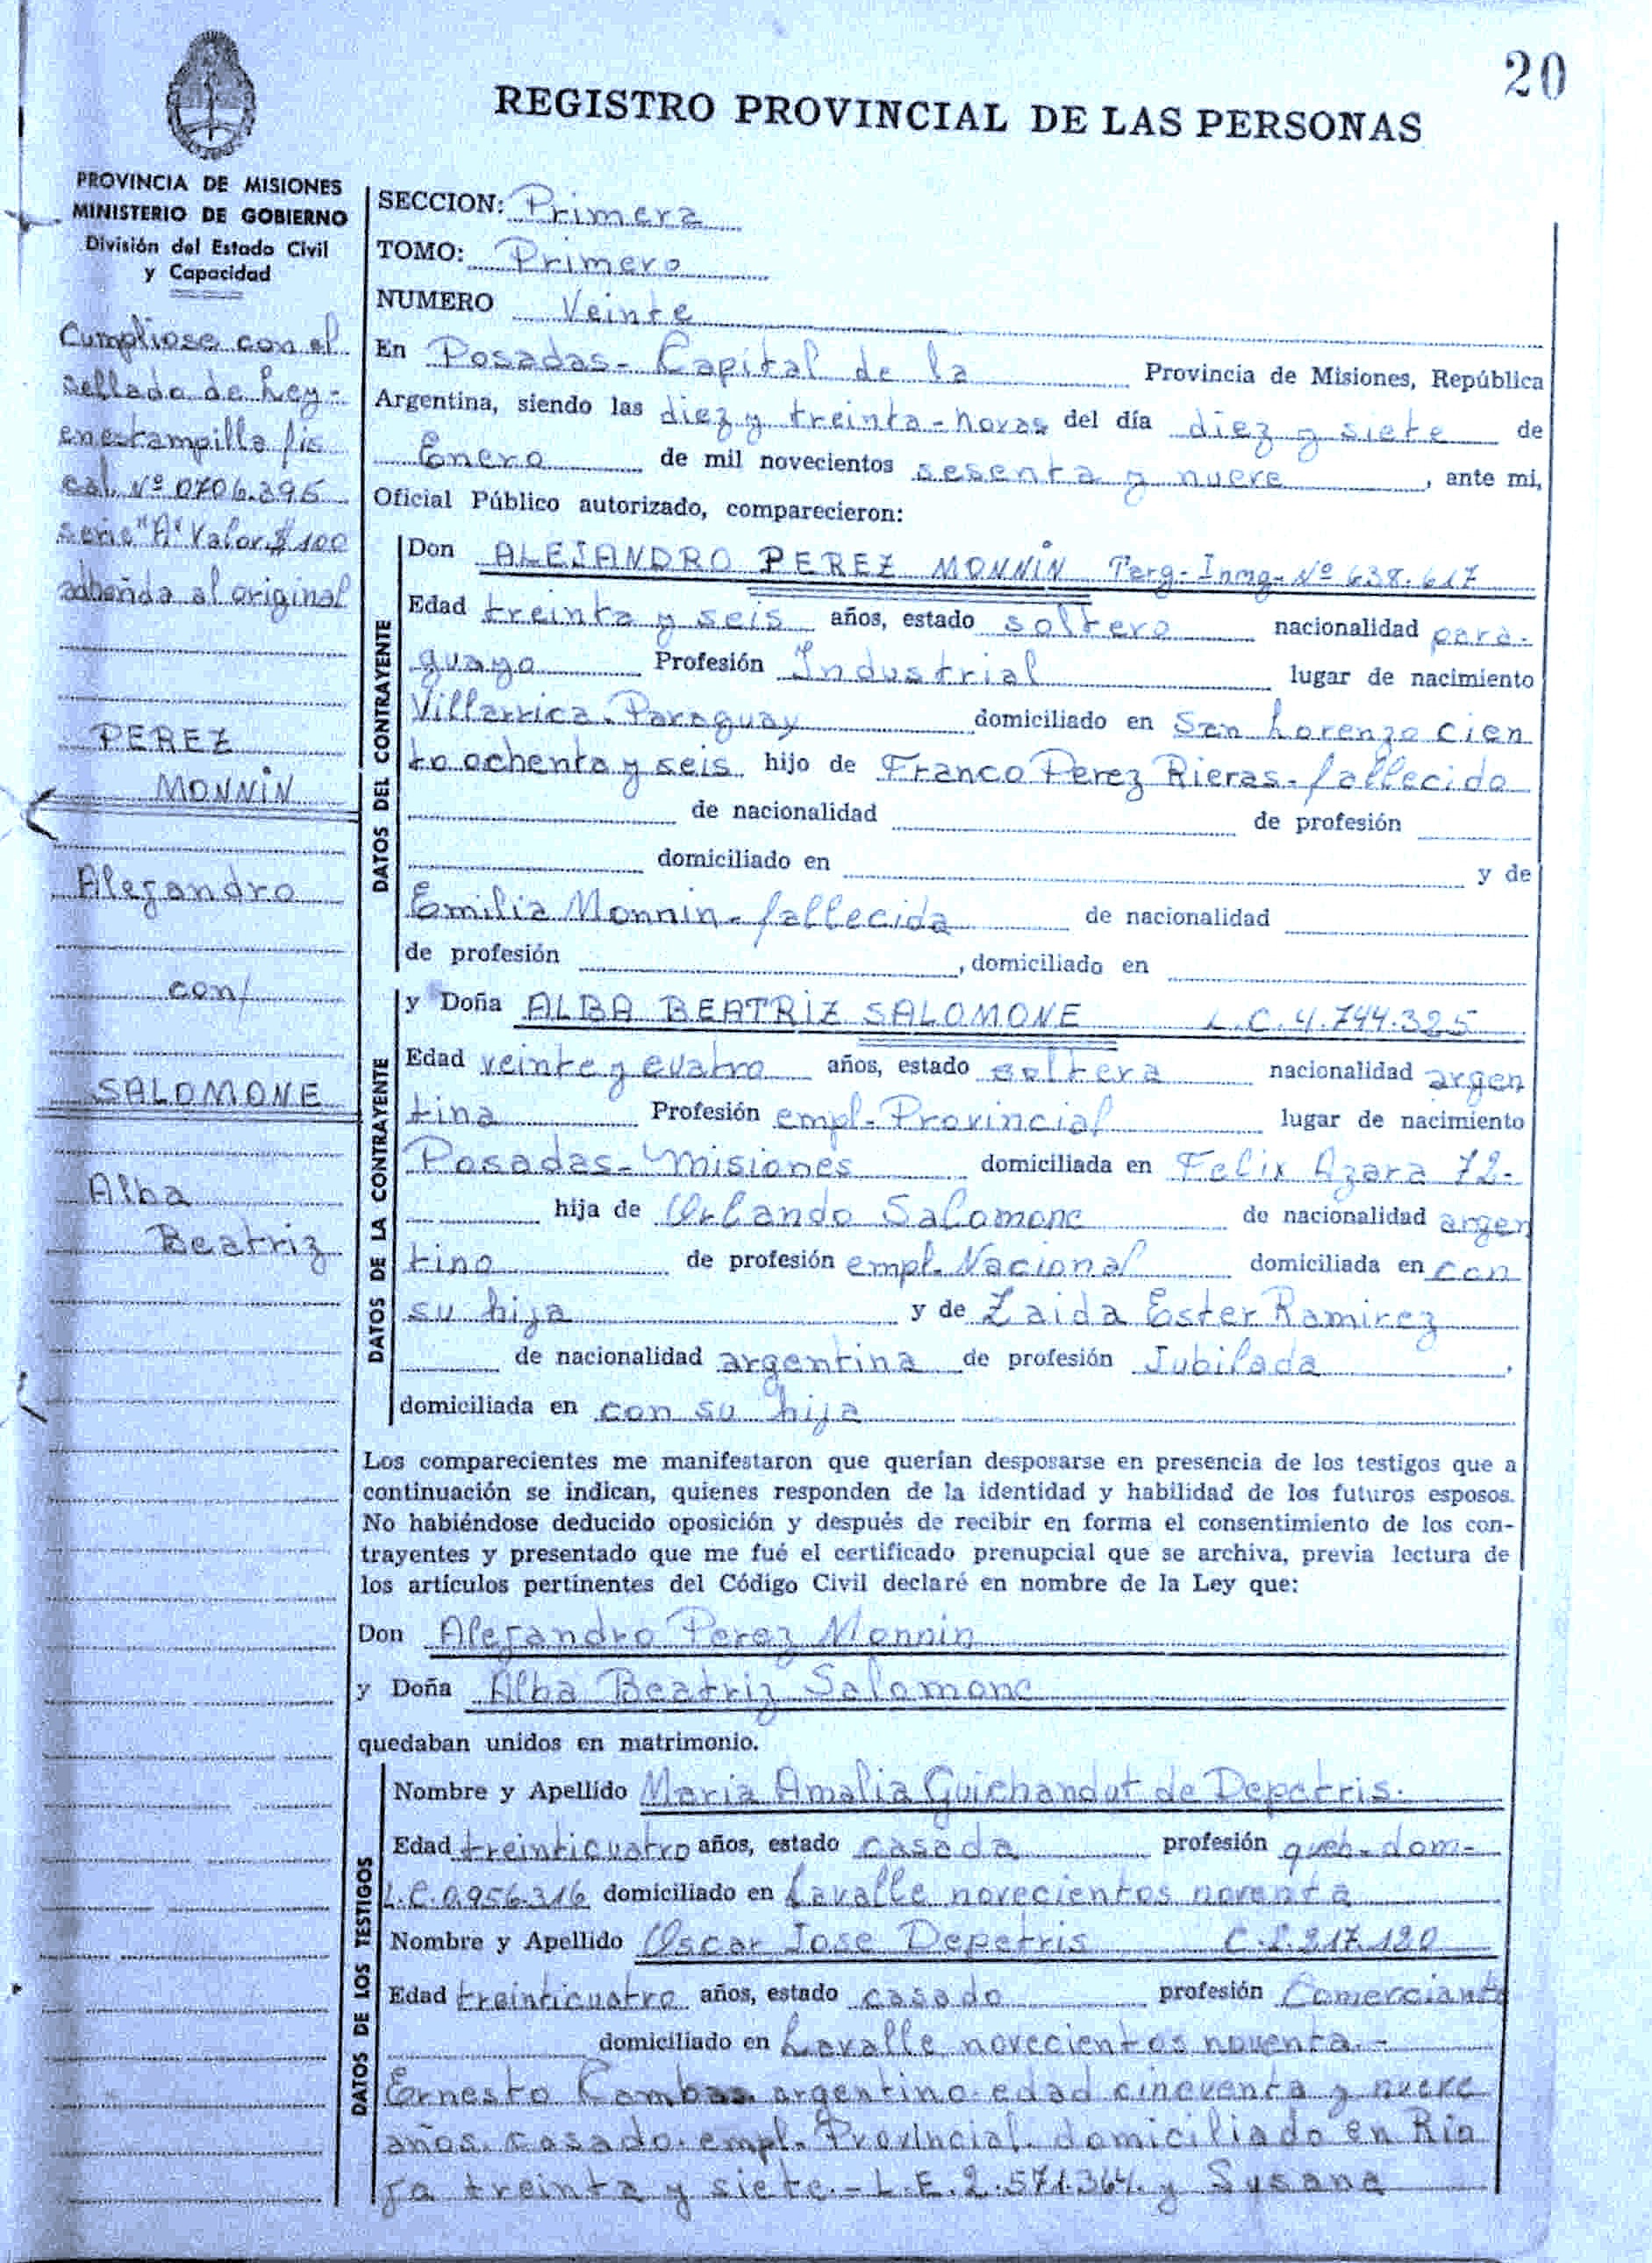 20
REGISTRO PROVINCIAL DE LAS PERSONAS
PROVINCIA DE MISIONES
MINISTERIO DE GOBIERNO
División del Estado Civil
y Capacidad
Cumpliose con el
sellado de Ley-
en estampilla fis
cal. Nº 0706.395
serie "A" Valor $ 100
adherida al original
PEREZ
MONNIN
Alejandro
con/
SALOMONE
Alba
Beatriz
SECCION: Primera
TOMO: Primero
NUMERO Veinte
En Posadas- Capital de la Provincia de Misiones, República
Argentina, siendo las diez y treinta-horas del día diez y siete de
Enero de mil novecientos sesenta y nueve, ante mi,
Oficial Público autorizado, comparecieron:
DATOS DEL CONTRAYENTE
Don ALEJANDRO PEREZ MONNIN Nº 638.617
Edad treinta y seis años, estado soltero nacionalidad para-
guayo Profesión Industrial lugar de nacimiento
Villarrica. Paraguay domiciliado en San Lorenzo cien
to ochenta y seis hijo de Franco Perez Rieras-fallecido
de nacionalidad de profesión
domiciliado en y de
Emilia Monnin-fallecida de nacionalidad
de profesión , domiciliado en
DATOS DE LA CONTRAYENTE
y Doña ALBA BEATRIZ SALOMONE L.C. 4.744.325
Edad veinte y cuatro años, estado soltera nacionalidad argen
tina Profesión empl-Provincial lugar de nacimiento
Posadas-Misiones domiciliada en Felix Azara 72-
hija de Orlando Salomone de nacionalidad argen
tino de profesión empl. Nacional domiciliada en con
su hija y de Zaida Ester Ramirez
de nacionalidad argentina de profesión Jubilada,
domiciliada en con su hija
Los comparecientes me manifestaron que querían desposarse en presencia de los testigos que a
continuación se indican, quienes responden de la identidad y habilidad de los futuros esposos.
No habiéndose deducido oposición y después de recibir en forma el consentimiento de los con-
trayentes y presentado que me fué el certificado prenupcial que se archiva, previa lectura de
los artículos pertinentes del Código Civil declaré en nombre de la Ley que:
Don Alejandro Perez Monnin
y Doña Alba Beatriz Salomone
quedaban unidos en matrimonio.
DATOS DE LOS TESTIGOS
Nombre y Apellido Maria Amalia Guichandut de Depetris.
Edad treinticuatro años, estado casada profesión queh-dom-
L.C.0.956.316 domiciliado en Lavalle novecientos noventa
Nombre y Apellido Oscar Jose Depetris 217.120
Edad treinticuatro años, estado casado profesión Comerciante
domiciliado en Lavalle novecientos noventa.-
Ernesto argentino-edad cincuenta y nueve
años. casado. empl. Provincial. domiciliado en Rio
ja treinta y siete.-L.E.2.571.364. y Susana